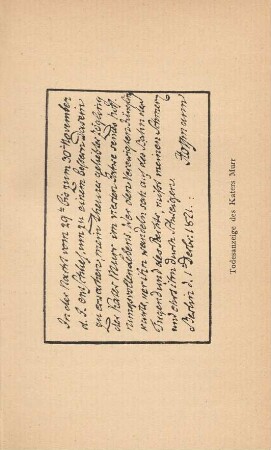 In der Nacht vom 29t bis zum 30t November
d. J. entschlief, um zu einem bessern Dasein
zu erwachen, mein theurer geliebter Zögling
der Kater Murr im vierten Jahre seines hoff-
nungsvollen Lebens. Wer den verewigten Jüngling
kannte, wer ihn wandeln sah auf der Bahn der
Tugend und des Rechts, mißt meinen Schmerz
und ehrt ihn durch Schweigen.
Berlin d. 1 Decbr 1821.
Hoffmann
Todesanzeige des Katers Murr